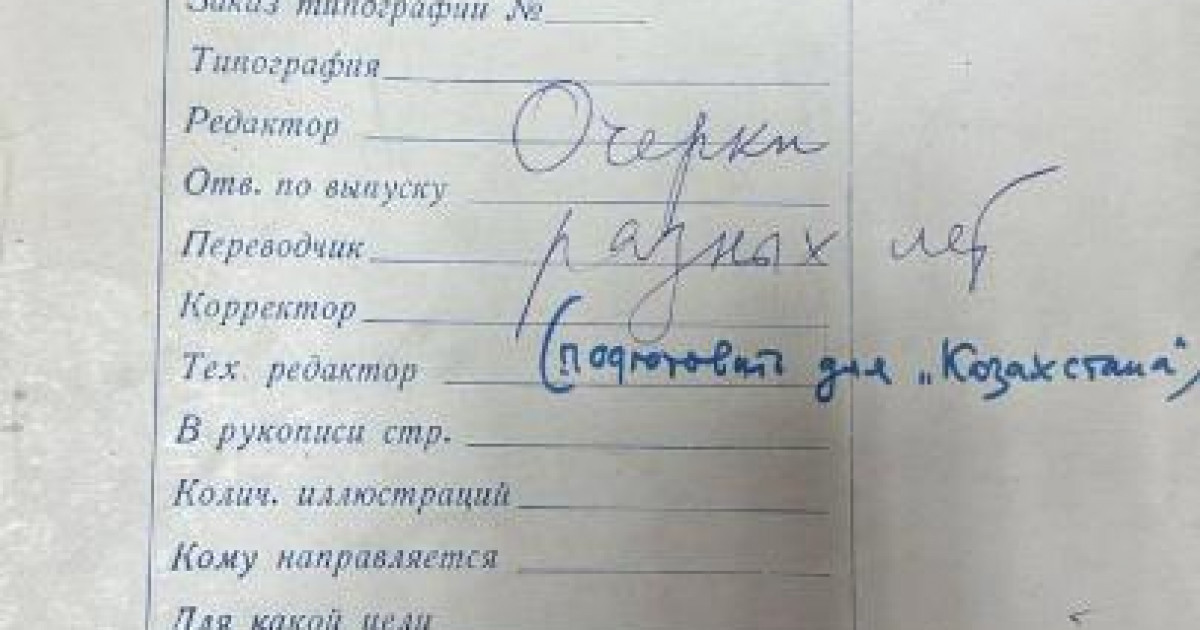 Заказ типографии №
Типография
Редактор
Очерки
Отв. по выпуску
Переводчик
разных лет
Корректор
Тех. редактор
(подготовить для „Козахстана")
В рукописи стр.
Колич. иллюстраций
Кому направляется
Для какой цели